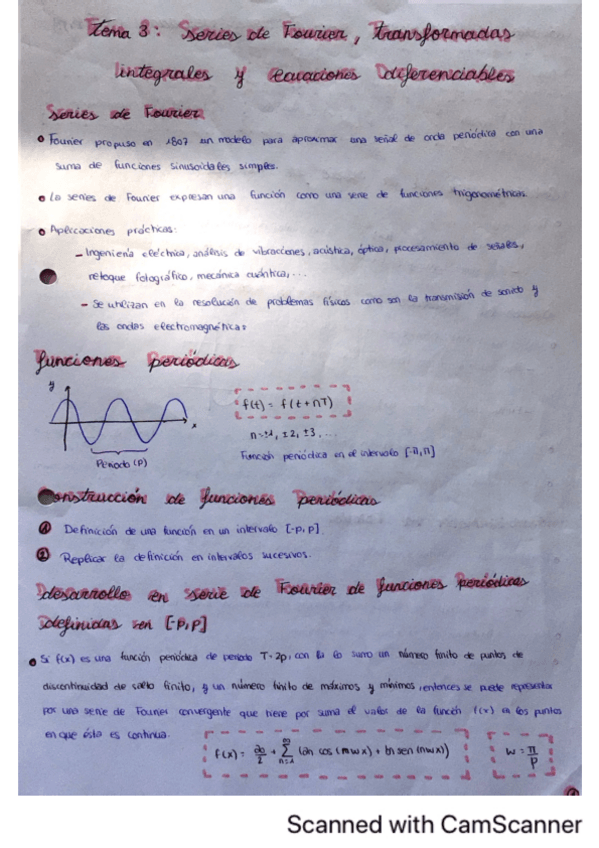 Tema 3: Series de Fourier, transformadas
integrales y ecuaciones Diferenciables
Series de Fourier
Fourier propuso en 1807 un modelo para aproximar una señal de onda periódica con una
suma de funciones sinusoidales simples.
La series de Fourier expresan una función como una serie de funciones trigonométricas.
Aplicaciones prácticas:
- Ingeniería eléctrica, análisis de vibraciones, acústica, óptica, procesamiento de señales,
retoque fotográfico, mecánica cuántica,...
- Se utilizan en la resolución de problemas físicos como son la transmisión de sonido y
las ondas electromagnéticas
funciones periódicas
y
x
Período (P)
f(t) = f(t+nT)
n=±1, ±2, ±3, ...
Función periódica en el intervalo [-π,π]
Construcción de funciones Periódicas
1 Definición de una función en un intervalo [-p,p]
2 Replicar la definición en intervalos sucesivos.
Desarrollo en serie de Fourier de funciones periódicas
Definidas en [-P,P]
Si f(x) es una función periódica de periodo T=2p, con lo sumo un número finito de puntos de
discontinuidad de salto finito, y un número finito de máximos y mínimos, entonces se puede representar
por una serie de Fourier convergente que tiene por suma el valor de la función f(x) en los puntos
en que ésta es continua.
f(x) = a0/2 + ∞∑n=1 (an cos(nwx) + bn sen(nwx))
w = π/P
Scanned with CamScanner